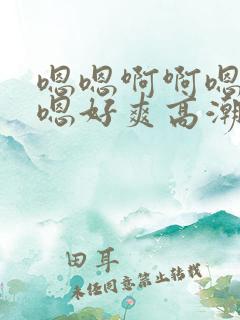 嗯嗯啊啊嗯
嗯好爽高潮
田耳
未经同意禁止转载